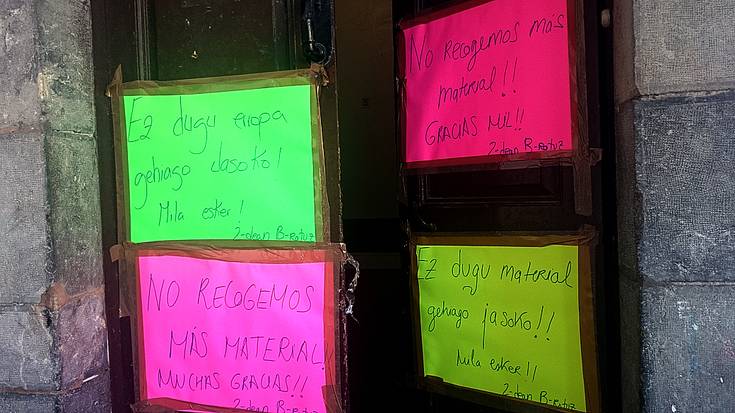 Ez dugu erropa
gehiago Jasoko!
Mila esker!
2-dean B-rotuz
NO RECOGEMOS
MÁS MATERIAL!!
MUCHAS GRACIAS!!
2-dean B-rotuz
NO Recogemos más
material!!
GRACIAS MIL!!
2-dean B-rotuz
Ez dugu material
gehiago jasoko!!
Mila esker!!
2-dean B-rotuz